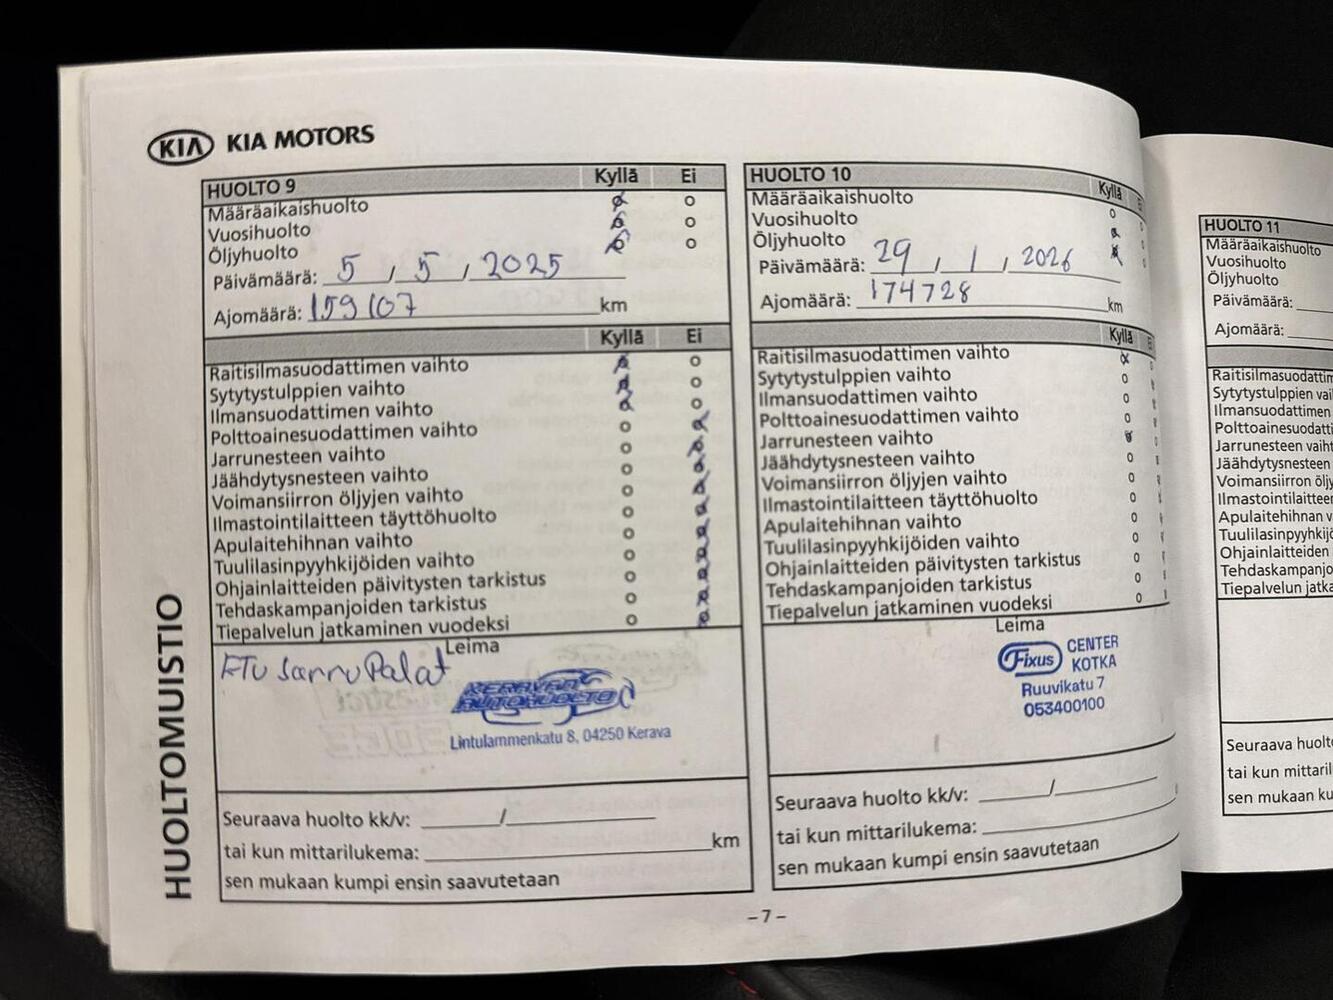 KIA KIA MOTORS
HUOLTOMUISTIO
HUOLTO 9 Kyllä Ei
Määräaikaishuolto
Vuosihuolto
Öljyhuolto
Päivämäärä: 5 / 5 / 2025
Ajomäärä: 159107 km
Kyllä Ei
Raitisilmasuodattimen vaihto
Sytytystulppien vaihto
Ilmansuodattimen vaihto
Polttoainesuodattimen vaihto
Jarrunesteen vaihto
Jäähdytysnesteen vaihto
Voimansiirron öljyjen vaihto
Ilmastointilaitteen täyttöhuolto
Apulaitehihnan vaihto
Tuulilasinpyyhkijöiden vaihto
Ohjainlaitteiden päivitysten tarkistus
Tehdaskampanjoiden tarkistus
Tiepalvelun jatkaminen vuodeksi
Leima
ETU JarruPalat
KERAVAN
AUTOHUOLTO
Lintulammenkatu 8, 04250 Kerava
Seuraava huolto kk/v: /
tai kun mittarilukema: km
sen mukaan kumpi ensin saavutetaan
HUOLTO 10 Kyllä
Määräaikaishuolto
Vuosihuolto
Öljyhuolto
Päivämäärä: 29 / 1 / 2026
Ajomäärä: 174728 km
Kyllä
Raitisilmasuodattimen vaihto
Sytytystulppien vaihto
Ilmansuodattimen vaihto
Polttoainesuodattimen vaihto
Jarrunesteen vaihto
Jäähdytysnesteen vaihto
Voimansiirron öljyjen vaihto
Ilmastointilaitteen täyttöhuolto
Apulaitehihnan vaihto
Tuulilasinpyyhkijöiden vaihto
Ohjainlaitteiden päivitysten tarkistus
Tehdaskampanjoiden tarkistus
Tiepalvelun jatkaminen vuodeksi
Leima
Fixus CENTER
KOTKA
Ruuvikatu 7
053400100
Seuraava huolto kk/v: /
tai kun mittarilukema:
sen mukaan kumpi ensin saavutetaan
- 7 -
HUOLTO 11
Määräaikaishuolto
Vuosihuolto
Öljyhuolto
Päivämäärä:
Ajomäärä:
Raitisilmasuodattim
Sytytystulppien vai
Ilmansuodattimen
Polttoainesuodatti
Jarrunesteen vaiht
Jäähdytysnesteen
Voimansiirron öljy
Ilmastointilaitteen
Apulaitehihnan v
Tuulilasinpyyhkijö
Ohjainlaitteiden
Tehdaskampanjo
Tiepalvelun jatka
Seuraava huolto
tai kun mittaril
sen mukaan ku